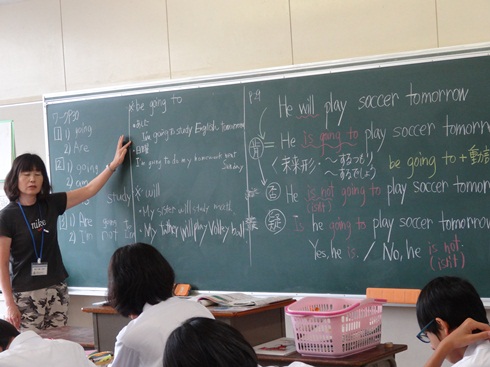 ワーク P30
1 1) going
2) Are
2 1) going
2) are
study
1) Are going
2) I'm not
be going to
I'm going to study English tomorrow
I'm going to do my homework next Sunday
will
・My sister will study math.
・My father will play Volley ball
He will play soccer tomorrow
肯 = He is going to play soccer tomorrow
〈未来形・〜するつもり
〜するでしょう〉
be going to + 動
否 He is not going to play soccer tomorrow
(isn't)
疑 Is he going to play soccer tomorrow
Yes, he is. / No, he is not.
(isn't)
nike